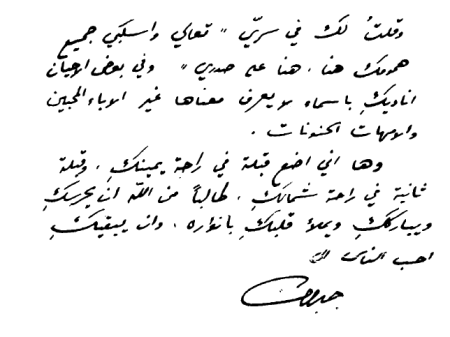 وقلتُ لك في سرّي " تعالي واسكبي جميع
همومك هنا ، هنا على صدري " وفي بعض الاحيان
اناديكِ باسماء لا يعرف معناها غير الاباء المحبين
والامهات الحنونات .
وها اني اضع قبلة في راحة يمينكِ ، وقبلة
ثانية في راحة شمالكِ ، طالباً من الله ان يحرسكِ
ويبارككِ ويملأ قلبكِ بانواره ، وان يبقيكِ
احب الناس الى
جبران